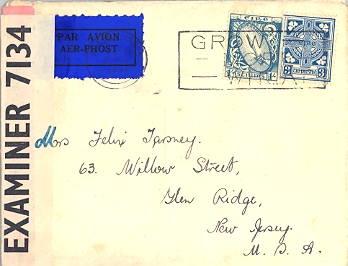 EXAMINER 7134
PAR AVION
AER-PHOST
GROW
Mrs Felix Tarsney,
63. Willow Street,
Glen Ridge,
New Jersey.
U. S. A.